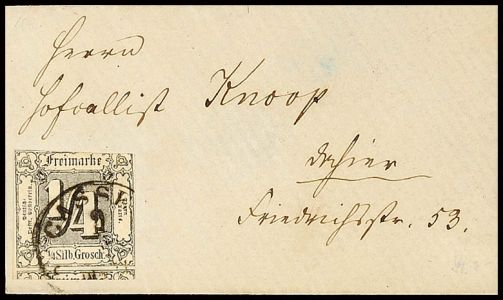 Herrn
Hofvallist Knoop
dahier
Friedrichsstr. 53.
Freimarke
1/4
1/4 Silb. Grosch.
CASSE